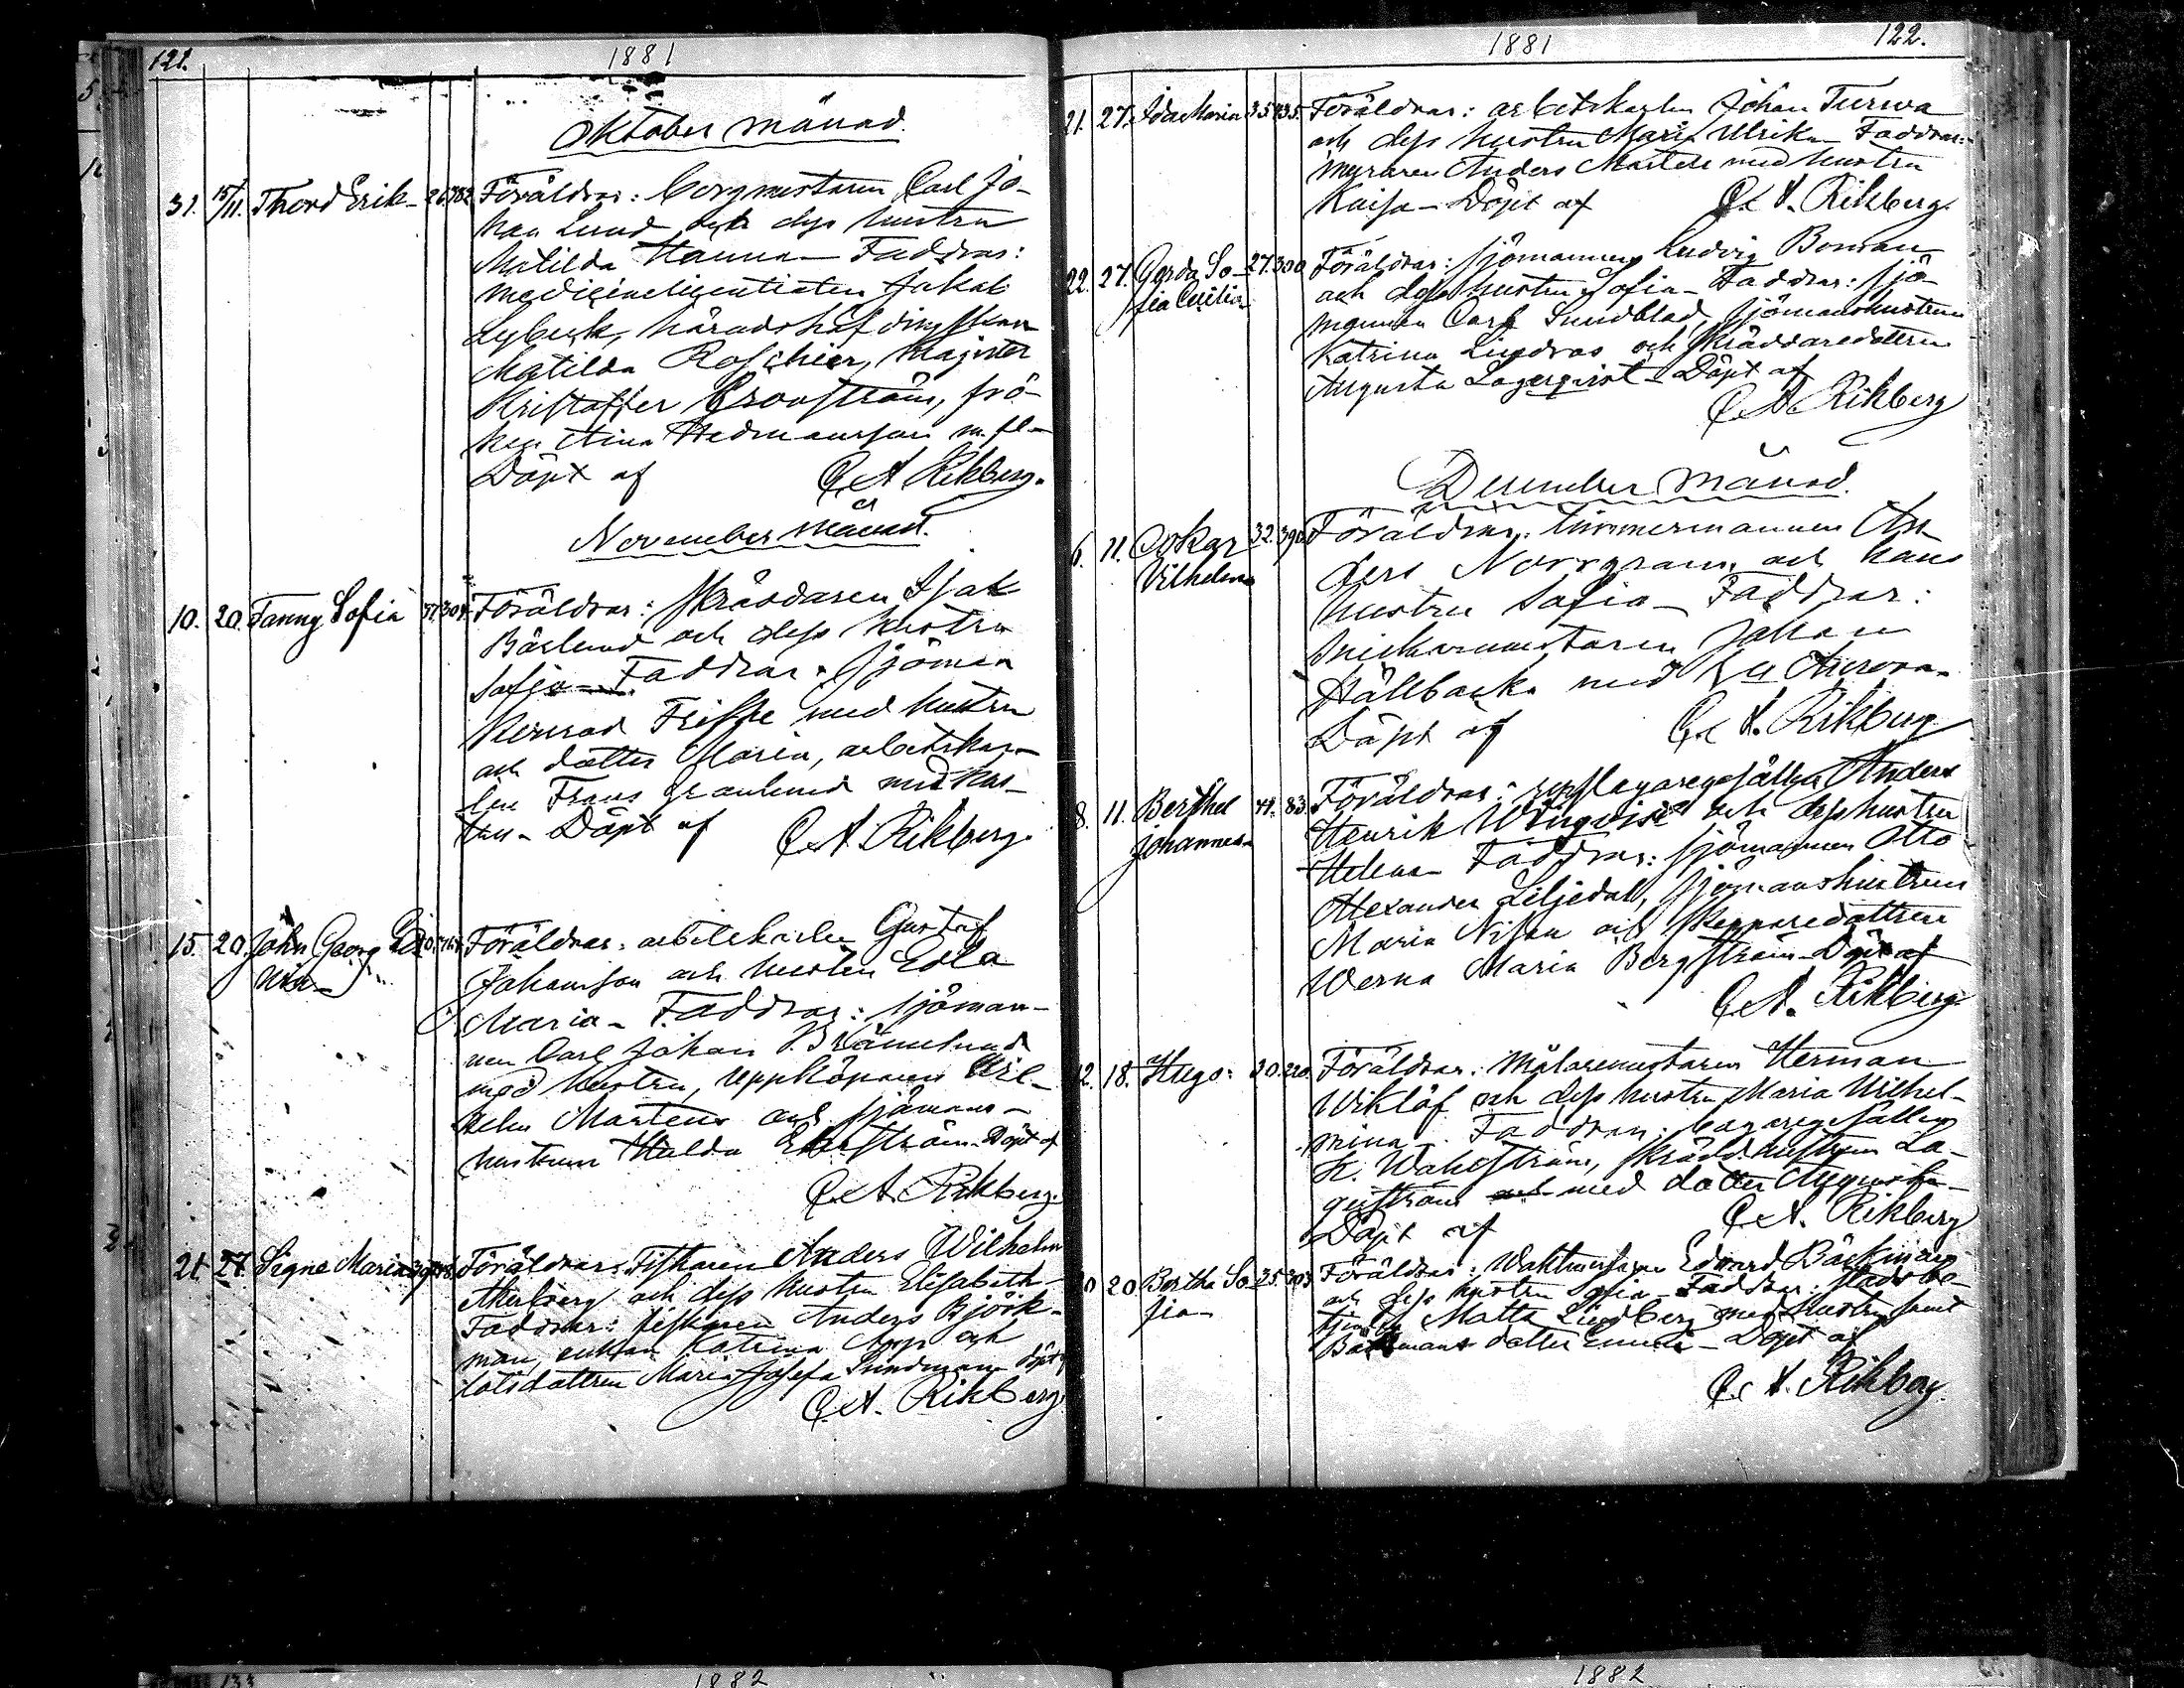 121.
1881
Oktober månad.
31. 15/11. Thord Erik 26. 782 Föräldrar: borgmästaren Carl Jo-
han Lund och dess hustru
Matilda Hanna – Faddrar:
medicinelicentiaten Jakob
Lybeck, häradshöfdingskan
Matilda Roschier, magister
Kristoffer Cronström, frö-
ken Aina Hedmansson m. fl. –
Döpt af C. A. Rikberg.
November månad.
10. 20. Fanny Sofia Föräldrar: Skräddaren Isak
Bäcklund och dess hustru
Sofia – Faddrar: sjöman
Konrad Frisse med hustru
och dotter Maria, arbetskar-
len Frans Granlund med hus-
tru – Döpt af C. A. Rikberg.
15. 20. John Georg Föräldrar: arbetskarlen Gustaf
Johansson och hustru Edla
Maria – Faddrar: sjöman-
nen Carl Johan Brännlund
med hustru, uppköparen Wil-
helm Martens och sjömans-
hustrun Hulda – Döpt af
C. A. Rikberg.
21. 27. Signe Maria Föräldrar: Fiskaren Anders Wilhelm
Åkerberg och dess hustru Elisabeth –
Faddrar: fiskaren Anders Björk-
man, enkan Katrina och
lotsdottren Maria Josefa Sundman Döpt af
C. A. Rikberg.
1881
122.
21. 27. Ida Maria 35. 435. Föräldrar: arbetskarlen Johan Turwa
och dess hustru Maria Ulrika – Faddrar:
muraren Anders Martell med hustru
Kaisa – Döpt af C. A. Rikberg.
22. 27. Gerda So- 27. 300 Föräldrar: sjömannen Ludvig Boman
fia Cecilia och dess hustru Sofia – Faddrar: sjö-
mannen Carl Sundblad, sjömanshustrun
Katrina Lindros och skräddaredottren
Augusta Lagerqvist – Döpt af
C. A. Rikberg
December månad.
6. 11. Oskar 32. Föräldrar: timmermannen An-
Vilhelm ders Norrgran och hans
hustru Sofia – Faddrar:
snickaremästaren Johan
Hällback med Aurora.
Döpt af C. A. Rikberg
8. 11. Berthel 83. Föräldrar: repslagaregesällen Anders
Johannes Henrik Winqvist och dess hustru
Helena – Faddrar: sjömannen Otto
Alexander Liljedal, sjömanshustrun
Maria och skepparedottren
Werna Maria Bergström – Döpt af
C. A. Rikberg.
12. 18. Hugo. 20. 220. Föräldrar: Målaremästaren Herman
Wiklöf och dess hustru Maria Wilhel-
mina. Faddrar: bagaregesällen
K. Wahlström, skrädd.hustrun La-
gerström och med dotter Augusta –
Döpt af C. A. Rikberg
20 Bertha So- 35. 303 Föräldrar: Waktmästaren Edvard Bäckman
fia – och dess hustru Sofia – Faddrar: stadsbe-
tjenten Matts Lindberg med hustru samt
Bäckmans dotter Emma – Döpt af
C. A. Rikberg.
1882
1882